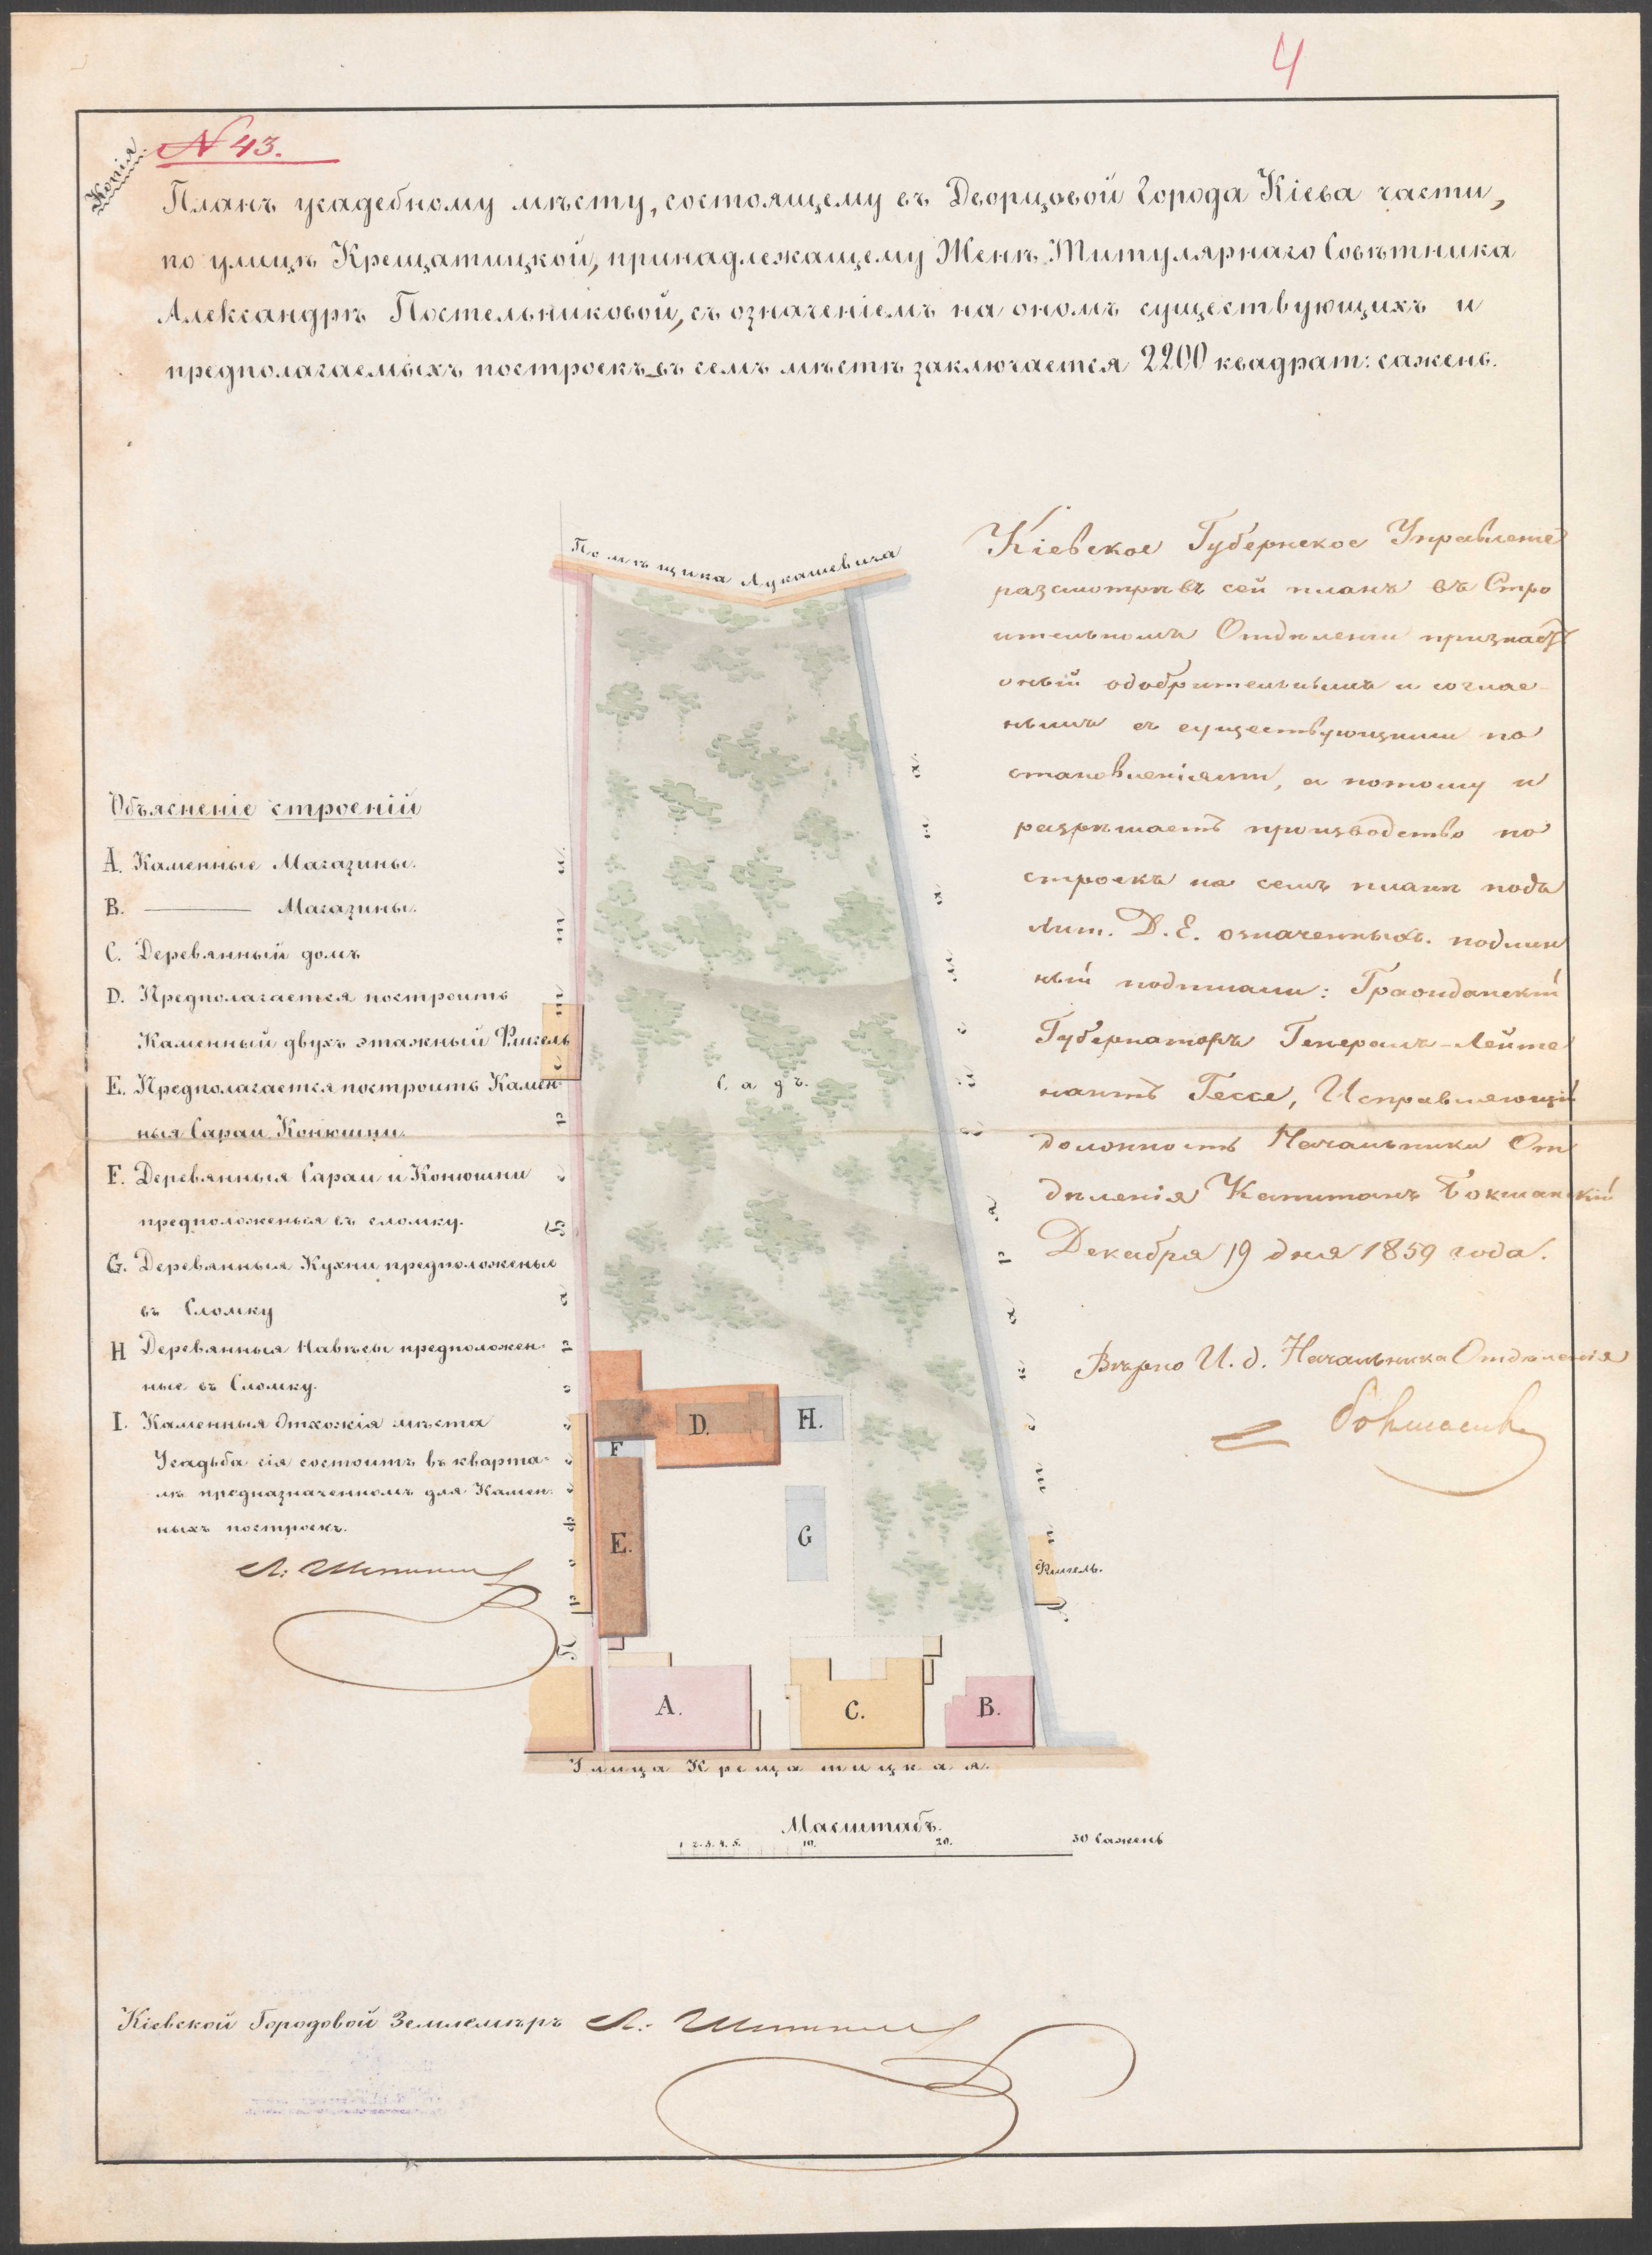 4
Копія.
N 43.
Планъ усадебному мѣсту, состоящему въ Дворцовой города Кіева части,
по улицѣ Крещатицкой, принадлежащему Женѣ Титулярнаго Совѣтника
Александрѣ Постельниковой, съ означеніемъ на ономъ существующихъ и
предполагаемыхъ построекъ въ семъ мѣстѣ заключается 2200 квадрат: сажень.
Помѣщика Лукашевича
Кіевское Губернское Управленіе
разсмотрѣвъ сей планъ въ Стро
ительномъ Отдѣленіи признаетъ
оный одобрительнымъ и соглас-
нымъ съ существующими по
становленіями, а потому и
разрѣшаетъ производство по
строекъ на семъ планѣ подъ
Лит. D. E. означенныхъ. подлин
ный подписали: Гражданскій
Губернаторъ Генералъ-Лейте
нантъ Гессе, Исправляющій
должность Начальника От
дѣленія Капитанъ Бокшанскій
Декабря 19 дня 1859 года.
Вѣрно И. д. Начальника Отдѣленія
Объясненіе строеній
A. Каменные Магазины.
B. ——— Магазины.
C. Деревянный домъ
D. Предполагается построить
Каменный двухъ этажный Флигель
E. Предполагается построить Камен-
ныя Сараи, Конюшни.
F. Деревянныя Сараи и Конюшни
предположенныя въ сломку.
G. Деревянныя Кухни предположеныя
въ Сломку
H Деревянныя Навѣсы предположен-
ные въ Сломку.
I. Каменныя Отхожія мѣста
Усадьба сія состоитъ въ кварта-
лѣ предназначенномъ для Камен-
ныхъ построекъ.
Садъ.
D.
H.
F
E.
G
Флигель.
A.
C.
B.
Улица Крещатицкая.
Масштабъ.
1 2. 3. 4. 5. 10. 20. 30 Сажень
Кіевской Городовой Землемѣръ